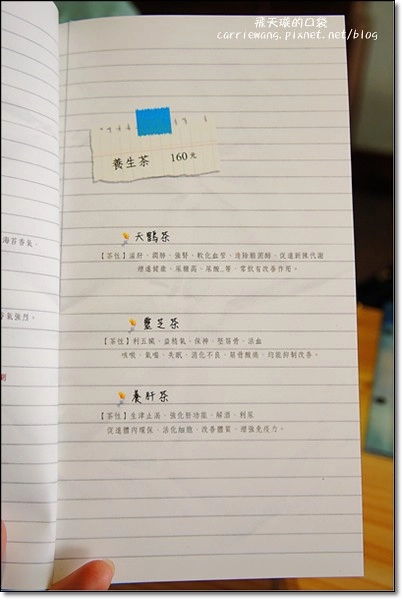 飛天璇的口袋
carriewang.pixnet.net/blog
養生茶 160元
天鶴茶
【茶性】滋肝、潤肺、強腎、軟化血管、消除膽固醇、促進新陳代謝
增進健康。尿糖高、尿酸..等，常飲有改善作用。
靈芝茶
【茶性】利五臟、益精氣、保神、堅筋骨、活血
咳嗽、氣喘、失眠、消化不良、筋骨酸痛，均能抑制改善。
養肝茶
【茶性】生津止渴、強化肝功能、解酒、利尿
促進體內環保、活化細胞、改善體質、增強免疫力。
海苔香氣、
香氣強烈。